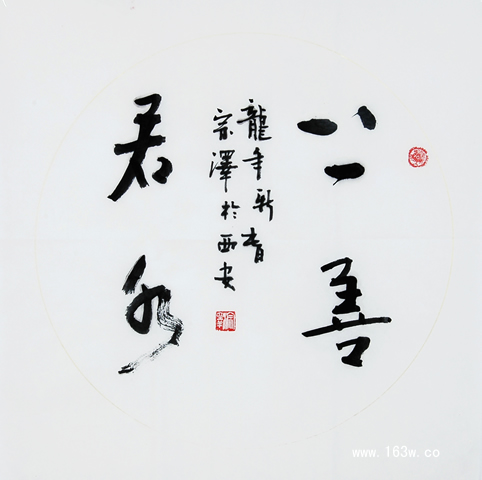 上善
若水
龍年新春
宗澤於西安
www.163w.co